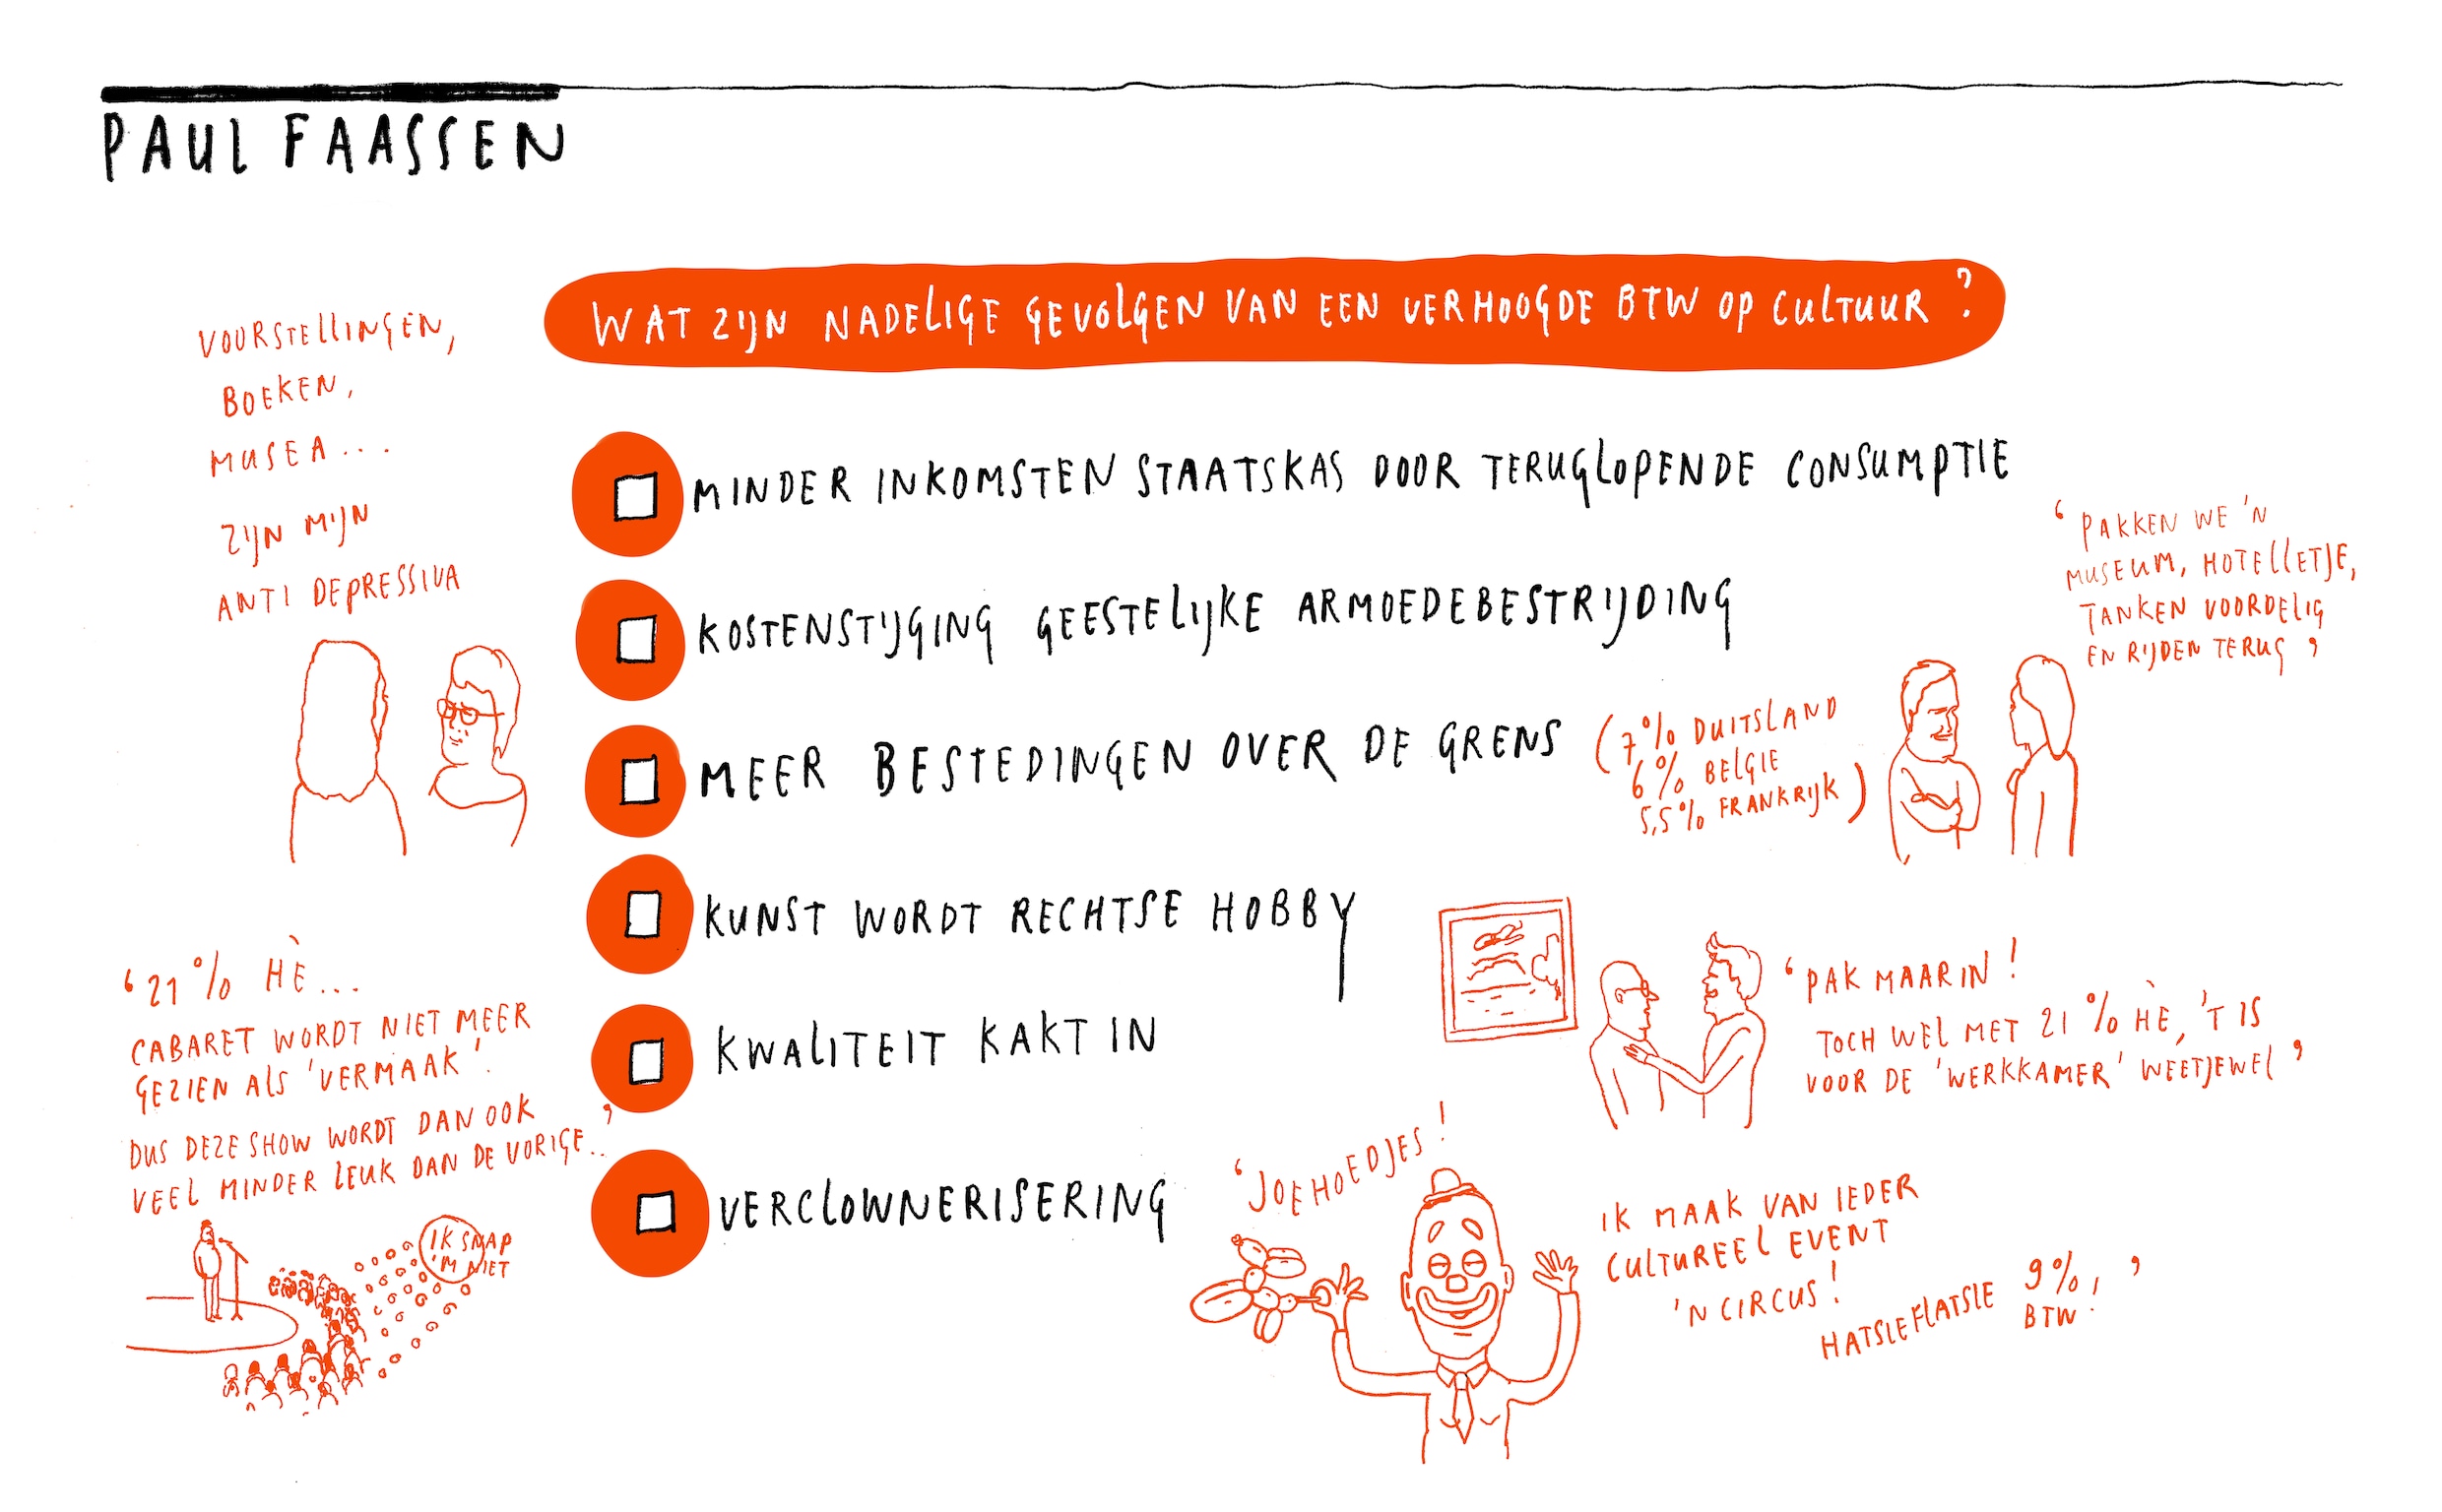 PAUL FAASSEN
WAT ZIJN NADELIGE GEVOLGEN VAN EEN VERHOOGDE BTW OP CULTUUR ?
VOORSTELLINGEN,
BOEKEN,
MUSEA...
ZIJN MIJN
ANTI DEPRESSIVA
MINDER INKOMSTEN STAATSKAS DOOR TERUGLOPENDE CONSUMPTIE
KOSTENSTIJGING GEESTELIJKE ARMOEDEBESTRIJDING
MEER BESTEDINGEN OVER DE GRENS
(7% DUITSLAND
6% BELGIE
5,5% FRANKRIJK)
'PAKKEN WE 'N
MUSEUM, HOTELLETJE,
TANKEN VOORDELIG
EN RIJDEN TERUG'
KUNST WORDT RECHTSE HOBBY
'PAK MAAR IN!
TOCH WEL MET 21% HÈ, 'T IS
VOOR DE 'WERKKAMER' WEETJEWEL'
KWALITEIT KAKT IN
'21% HÈ...
CABARET WORDT NIET MEER
GEZIEN ALS 'VERMAAK'.
DUS DEZE SHOW WORDT DAN OOK
VEEL MINDER LEUK DAN DE VORIGE..'
IK SNAP
'M NIET
VERCLOWNERISERING
'JOEHOEDJES!
IK MAAK VAN IEDER
CULTUREEL EVENT
'N CIRCUS!
HATSLEFLATSLE 9%
BTW!'